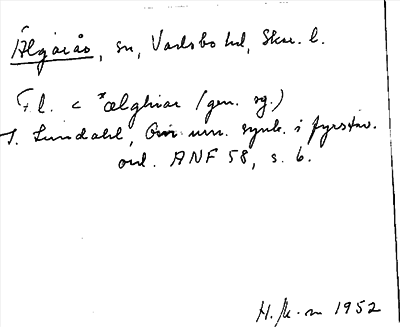 Älgarås, sn, Vadsbo hd, Skar. l.
F. l. < *ælghiar (gen. sg.)
I. Lindahl, Om  synk. i fyrstav.
ord. ANF 58, s. 6.
H. 1952